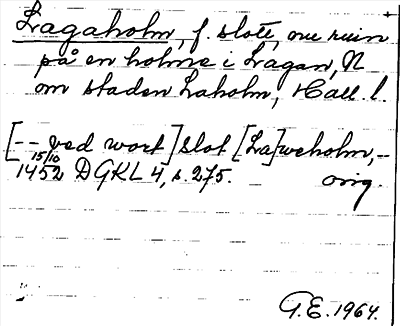 Lagaholm, f. slott, nu ruin
på en holme i Lagan, N
om staden Laholm, Hall. l.
[-- ved wort] slot [La]weholm, --
15/10
1452 DGKL 4, s. 275. orig.
G.E. 1964.